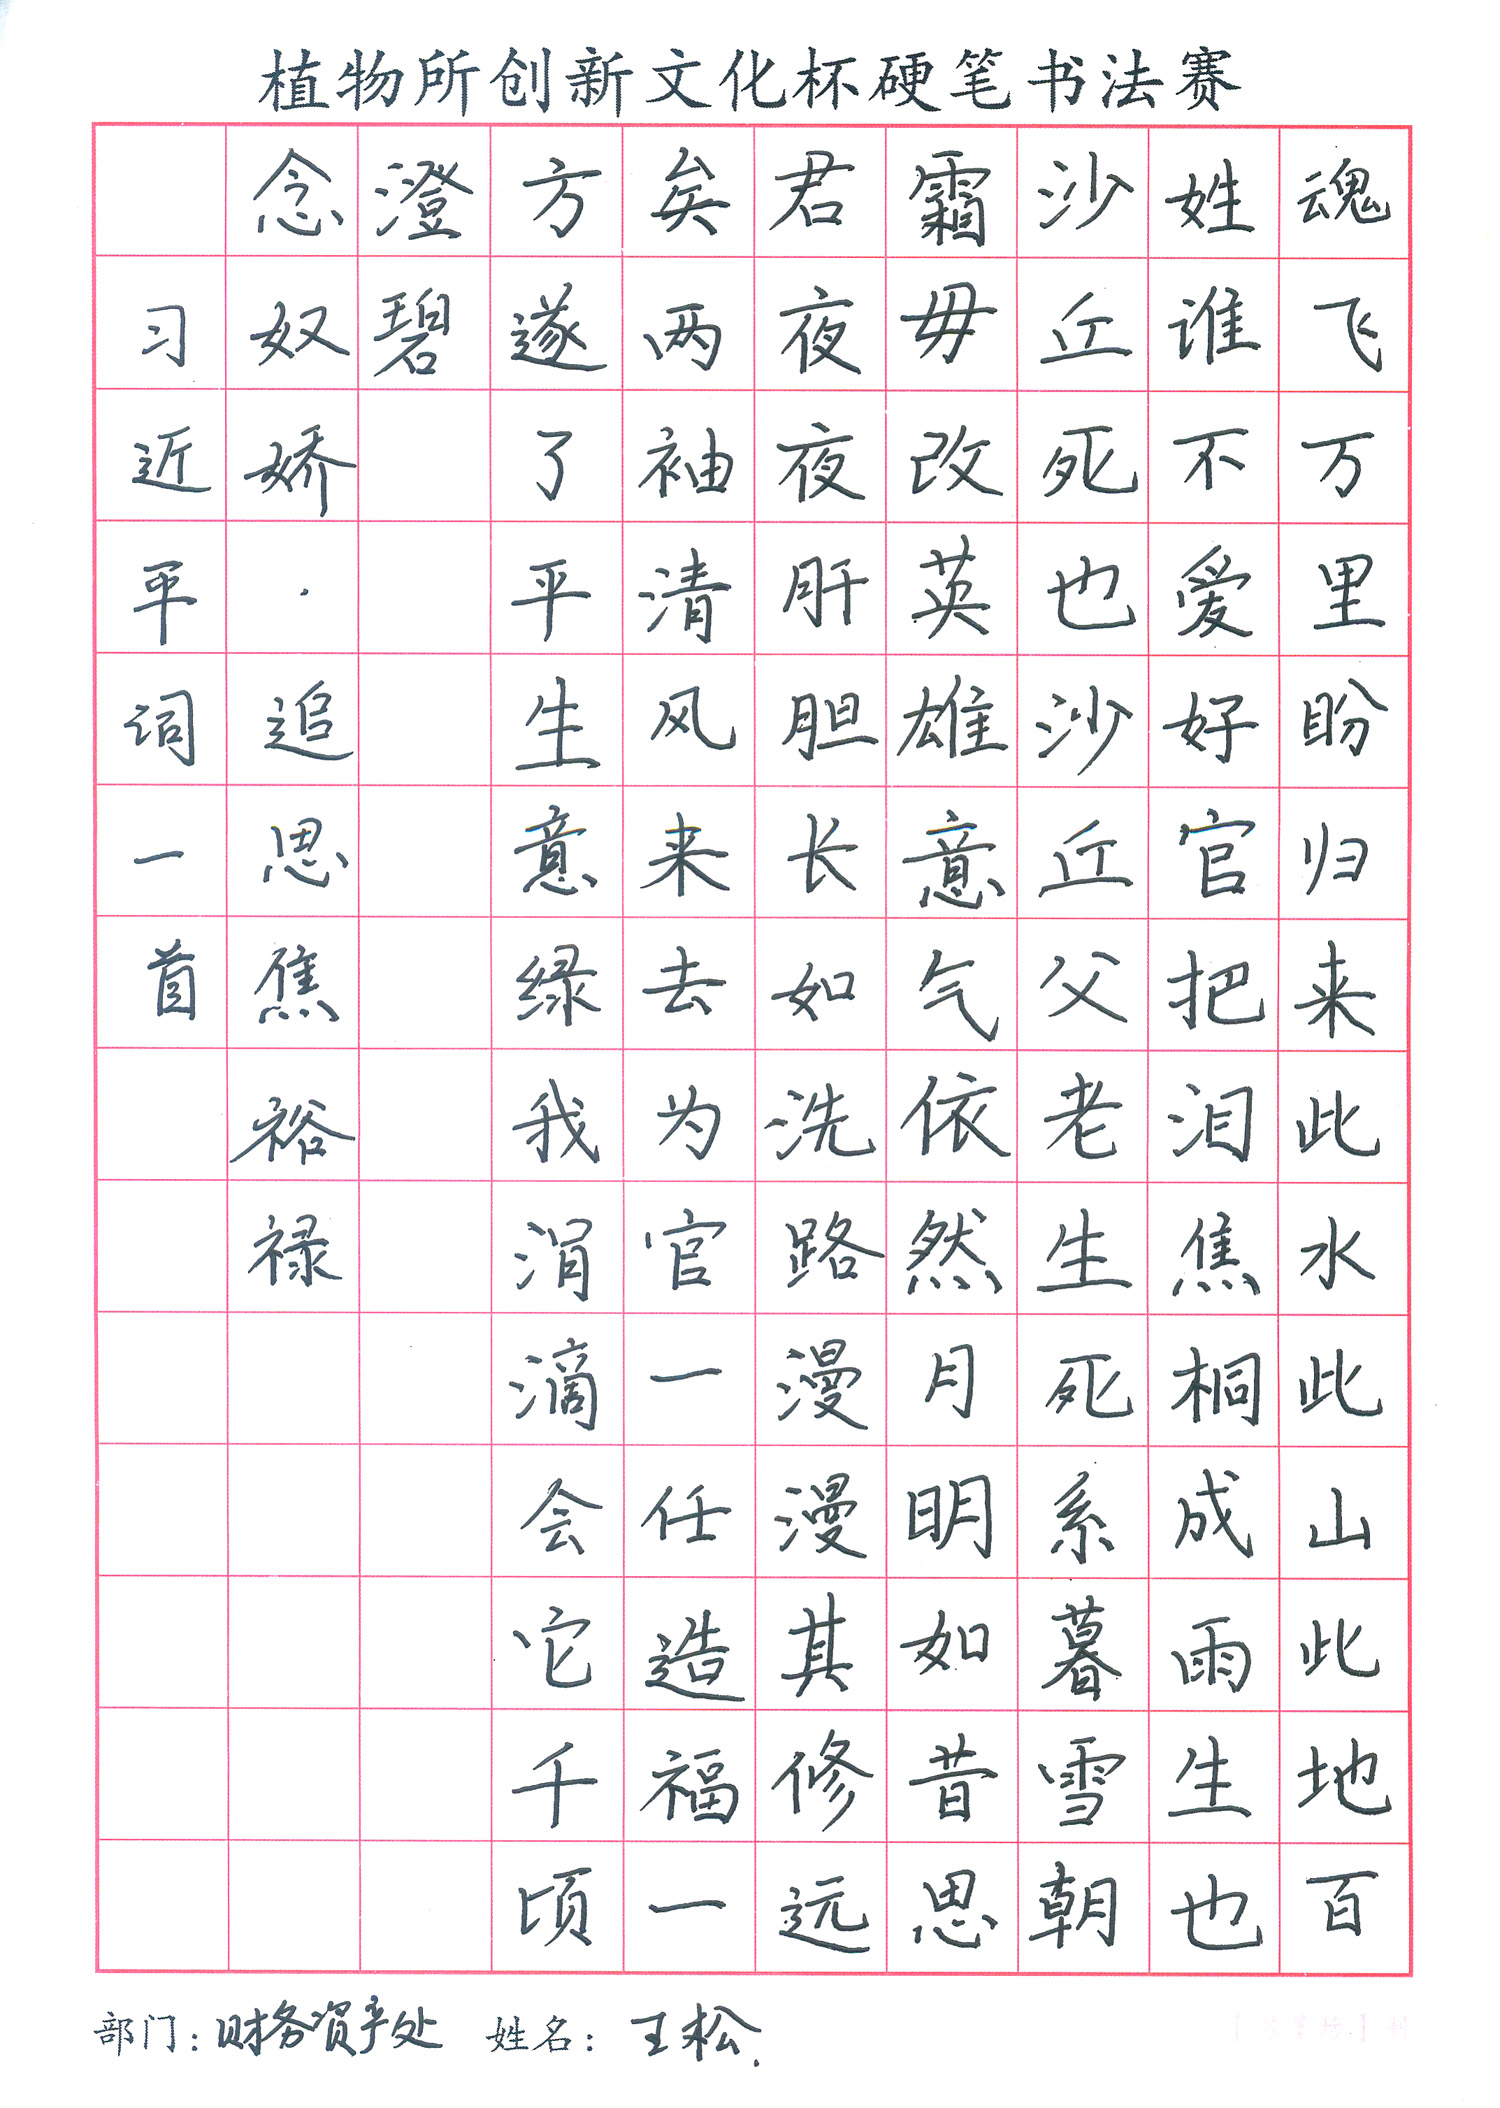 植物所创新文化杯硬笔书法赛
魂飞万里盼归来此水此山此地百
姓谁不爱好官把泪焦桐成雨生也
沙丘死也沙丘父老生死系暮雪朝
霜毋改英雄意气依然月明如昔思
君夜夜肝胆长如洗路漫漫其修远
矣两袖清风来去为官一任造福一
方遂了平生意绿我涓滴会它千顷
澄碧
念奴娇·追思焦裕禄
习近平词一首
部门：财务资产处 姓名：王松